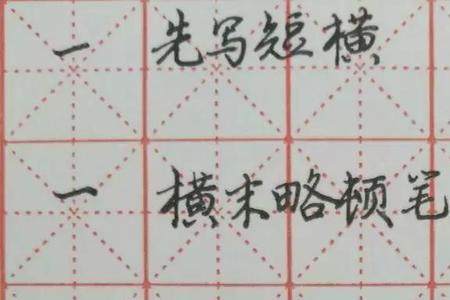 一 先写短横
一 横末略顿笔